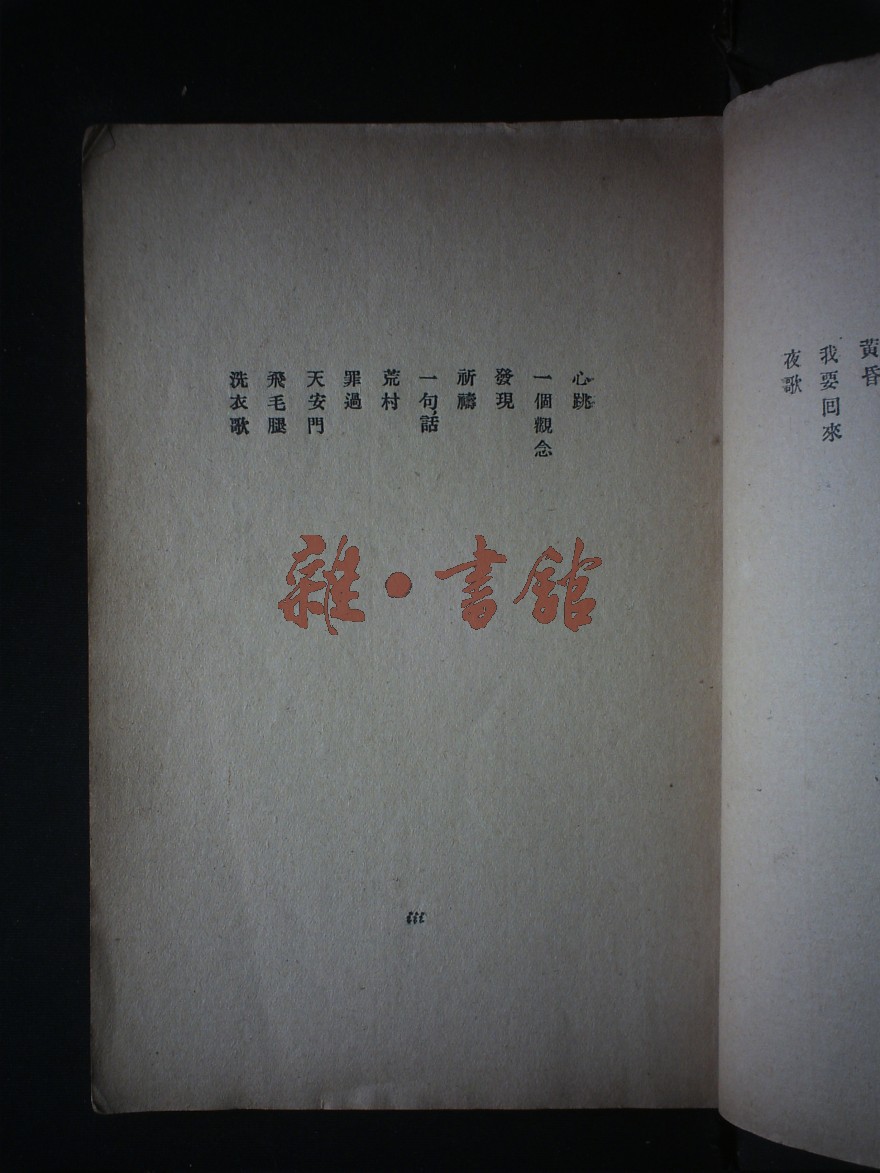 黃昏
我要回來
夜歌
心跳
一個觀念
發現
祈禱
一句話
荒村
罪過
天安門
飛毛腿
洗衣歌
iii
雜·書館